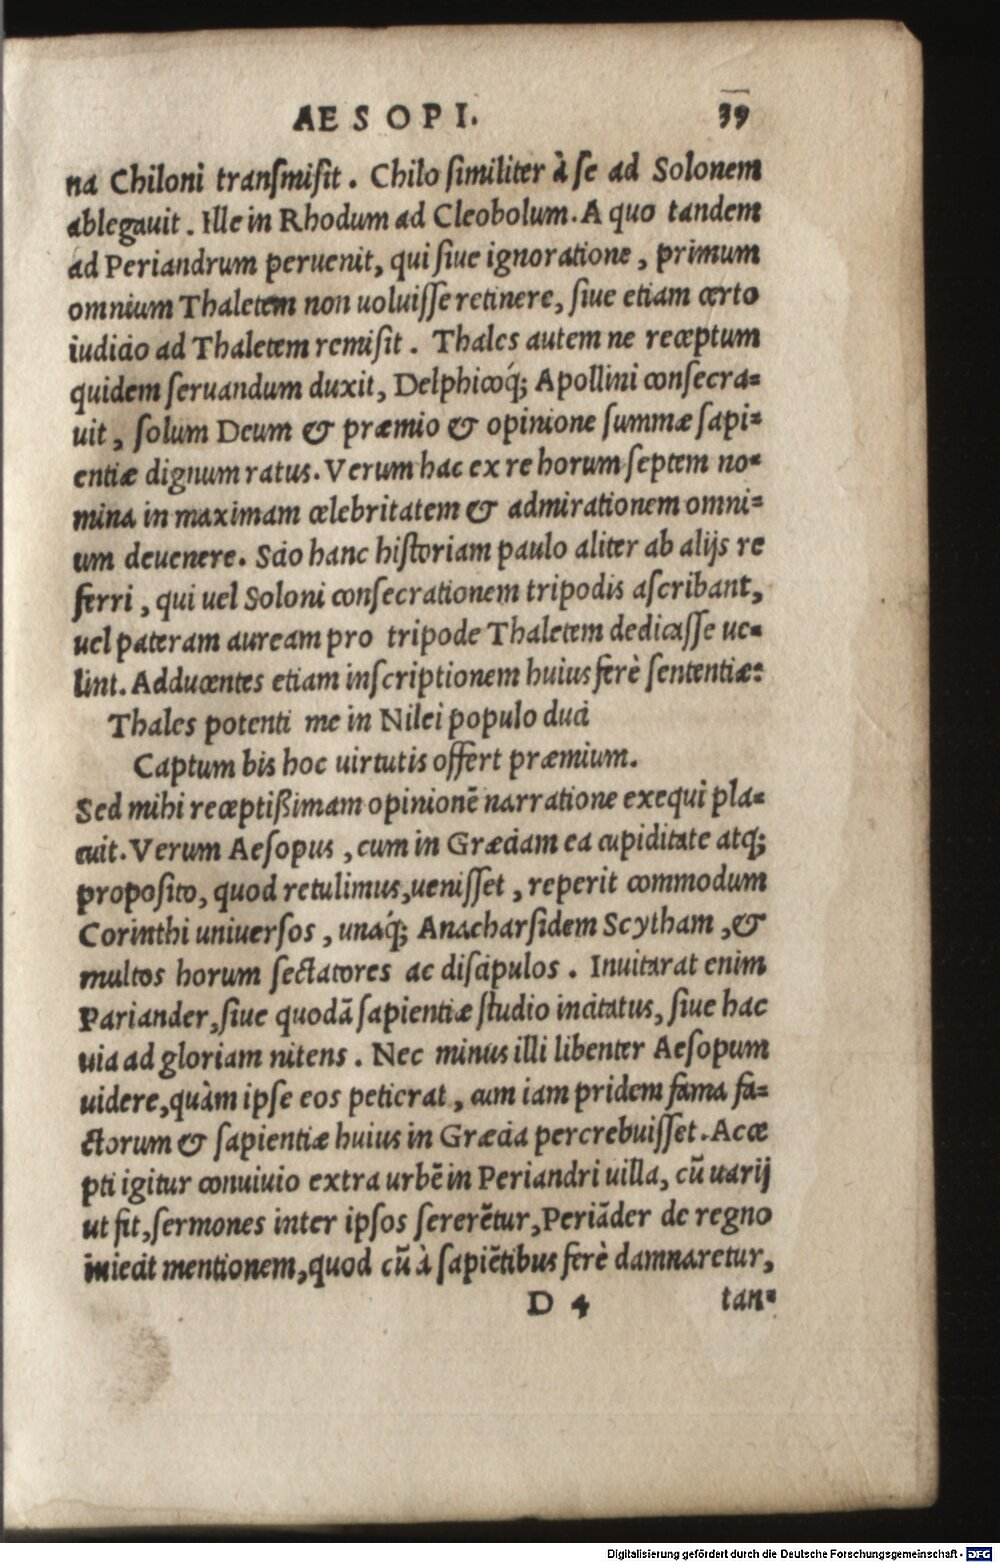 AESOPI. 39
na Chiloni transmisit. Chilo similiter à se ad Solonem
ablegauit. Ille in Rhodum ad Cleobolum. A quo tandem
ad Periandrum peruenit, qui siue ignoratione, primum
omnium Thaletem non uoluisse retinere, siue etiam certo
iudicio ad Thaletem remisit. Thales autem ne receptum
quidem seruandum duxit, Delphicoq́; Apollini consecra=
uit, solum Deum & præmio & opinione summæ sapi=
entiæ dignum ratus. Verum hac ex re horum septem no=
mina in maximam celebritatem & admirationem omni=
um deuenere. Scio hanc historiam paulo aliter ab alijs re
ferri, qui uel Soloni consecrationem tripodis ascribant,
uel pateram auream pro tripode Thaletem dedicasse ue=
lint. Adducentes etiam inscriptionem huius ferè sententiæ:
Thales potenti me in Nilei populo duci
Captum bis hoc uirtutis offert præmium.
Sed mihi receptißimam opinionē narratione exequi pla=
cuit. Verum Aesopus, cum in Græciam ea cupiditate atq;
proposito, quod retulimus, uenisset, reperit commodum
Corinthi uniuersos, unaq́; Anacharsidem Scytham, &
multos horum sectatores ac discipulos. Inuitarat enim
Pariander, siue quodā sapientiæ studio incitatus, siue hac
uia ad gloriam nitens. Nec minus illi libenter Aesopum
uidere, quàm ipse eos petierat, cum iam pridem fama fa=
ctorum & sapientiæ huius in Græcia percrebuisset. Acce
pti igitur conuiuio extra urbē in Periandri uilla, cū uarij
ut fit, sermones inter ipsos sererētur, Periāder de regno
iniecit mentionem, quod cū à sapiētibus ferè damnaretur,
D 4 tan=
Digitalisierung gefördert durch die Deutsche Forschungsgemeinschaft - DFG